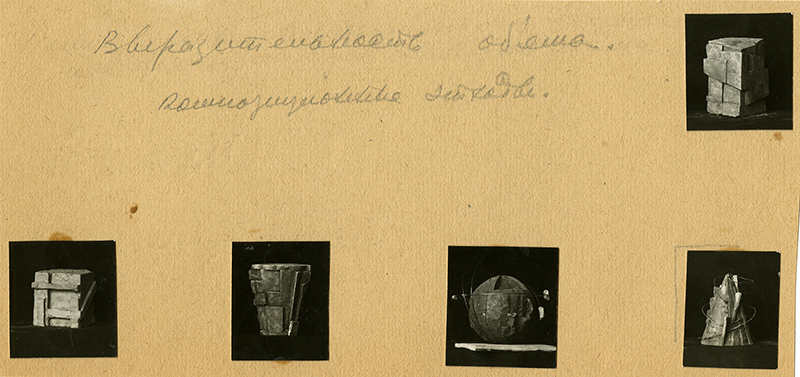 Выразительность об'ема.
композиционные этюды.